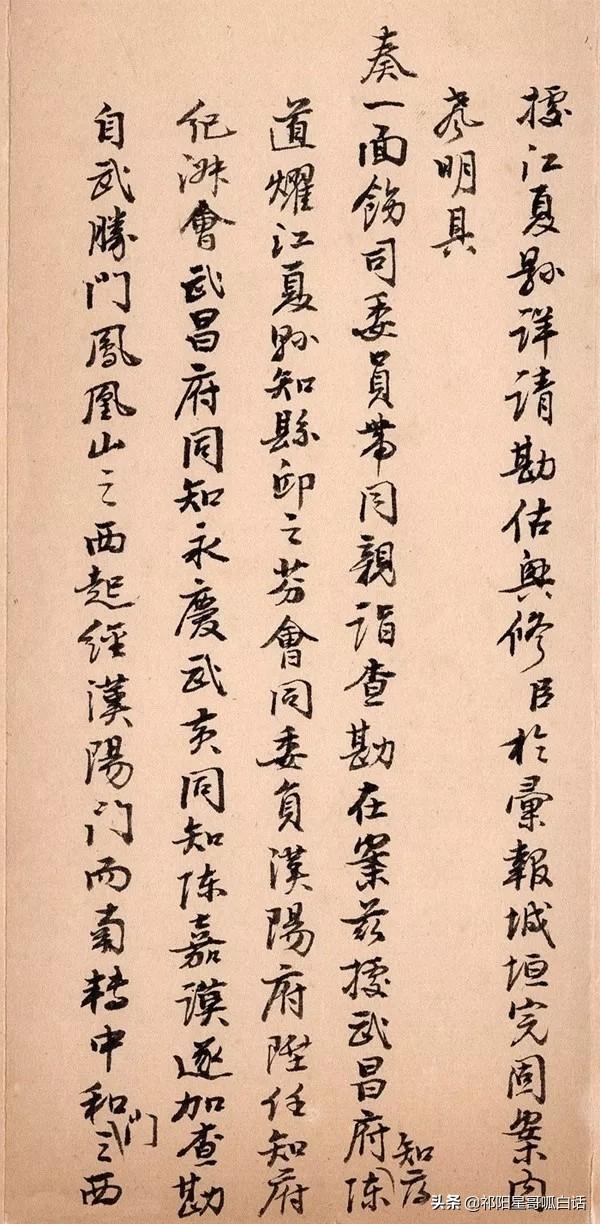 據江夏縣詳請勘估興修臣於彙報城垣完固案內
声明具
奏一面飭司委員帶同親詣查勘在案茲據武昌府知府陳
道燿江夏縣知縣邱之芬會同委員漢陽府陞任知府
紀淑會武昌府同知永慶武黃同知陳嘉謨逐加查勘
自武勝門鳳凰山之西起經漢陽門而南轉中和門之西
头条 @祁阳星哥呱白话